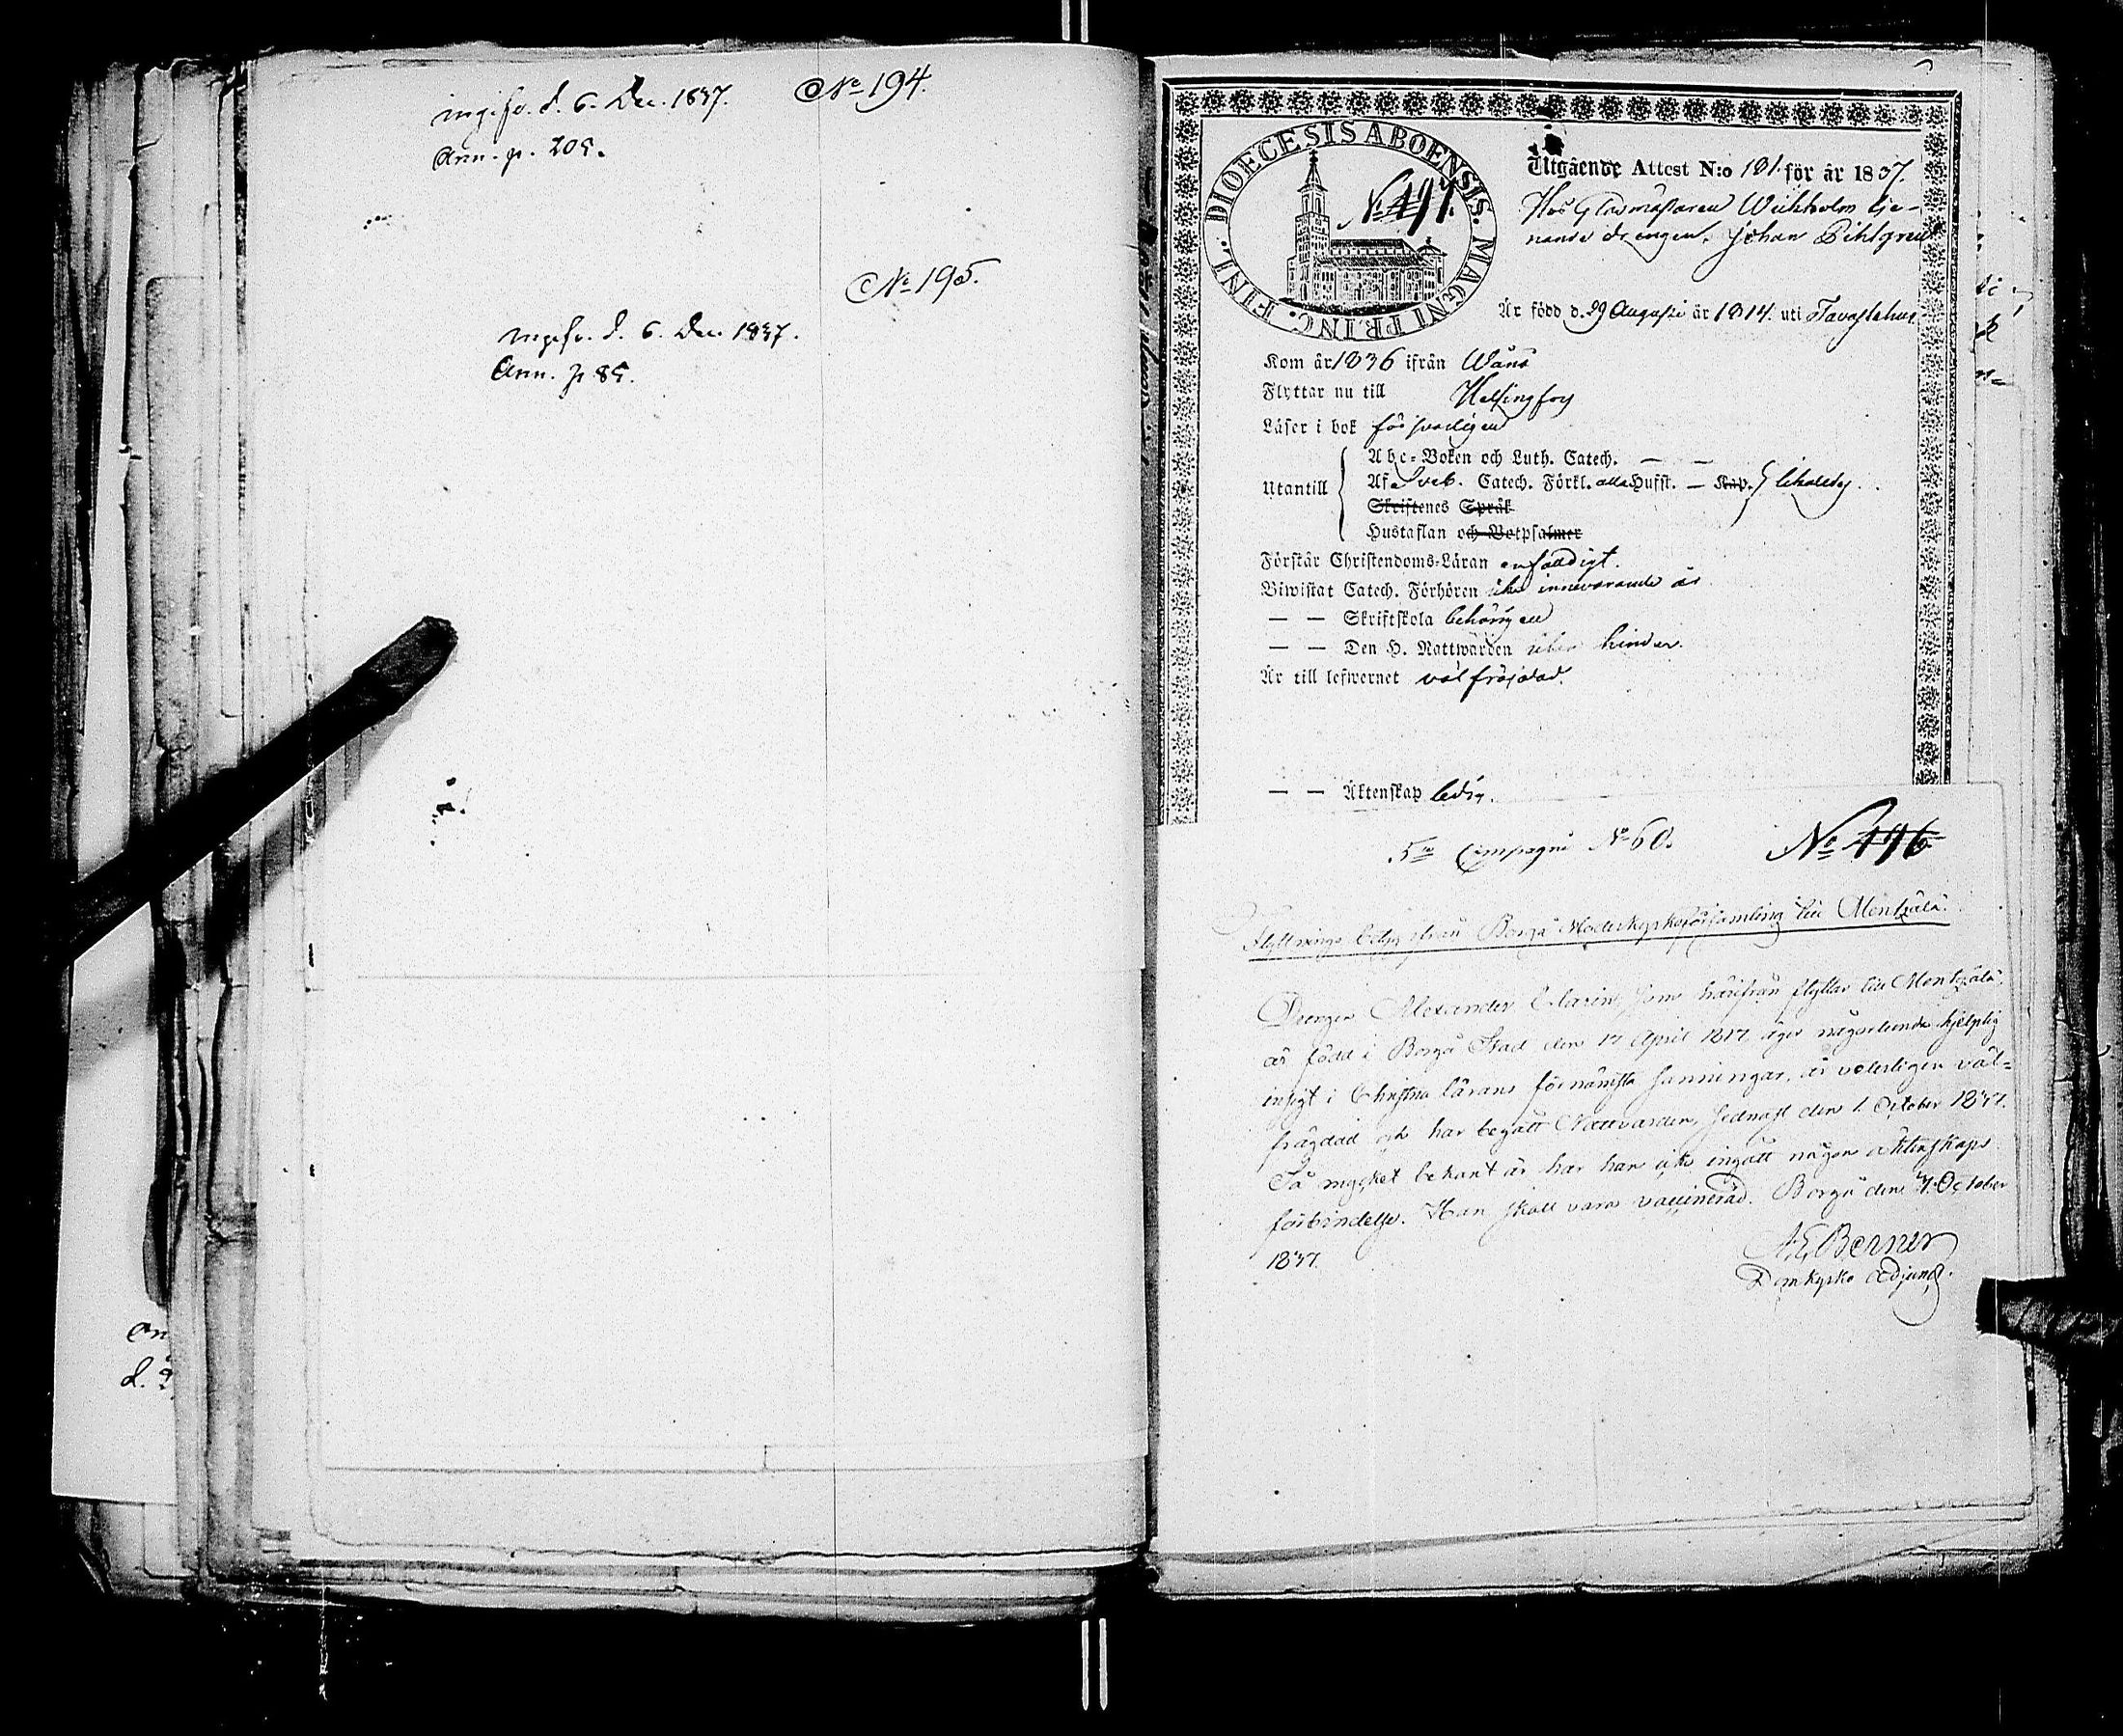 ingifv. d. 6. Dec. 1837. No 194.
Ann. p. 205.
No 195.
ingifv. d. 6. Dec. 1837.
Ann. p 85.
DIOECESIS ABOENSIS. MAGNI PRINC. FINL.
No 197.
Utgående Attest N:o 181. för år 1837.
Hos Glasmästaren Wickholm tje-
nande drengen Johan Pihlgren
Är född d. 29 Augusti år 1814. uti Tavastehus
Kom år 1836 ifrån Wånå
Flyttar nu till Helsingfors
Läser i bok försvarligen
Utantill
Abc-Boken och Luth. Catech. — —
Af Sveb. Catech. Förkl. alla Hufst. — Kap.
Skriftenes Språk
Hustaflan och Botpsalmer
Förstår Christendoms-Läran enfaldigt.
Biwistat Catech. Förhören icke innevarande år
— — Skriftskola behörigen
— — Den H. Nattwarden utan hinder.
Är till lefwernet välfräjdad.
— — Äktenskap ledig.
5te Compagni No 60. No 196
Flyttnings betyg ifrån Borgå Moderkyrkoförsamling till Mentzälä.
Drengen Alexander Clarin, som härifrån flyttar till Mentzälä,
är född i Borgå Stad den 17 April 1817. äger någorlunda hjelplig
insigt i Christna lärans förnämsta sanningar, är veterligen väl-
frägdad och har begått Nattvarden, sednast den 1. October 1837.
Så mycket bekant är har han icke ingått någon äktenskaps
förbindelse. Han skall vara vaccinerad. Borgå den 7. October
1837.
A. E. Berner
Domkyrko Adjunct.